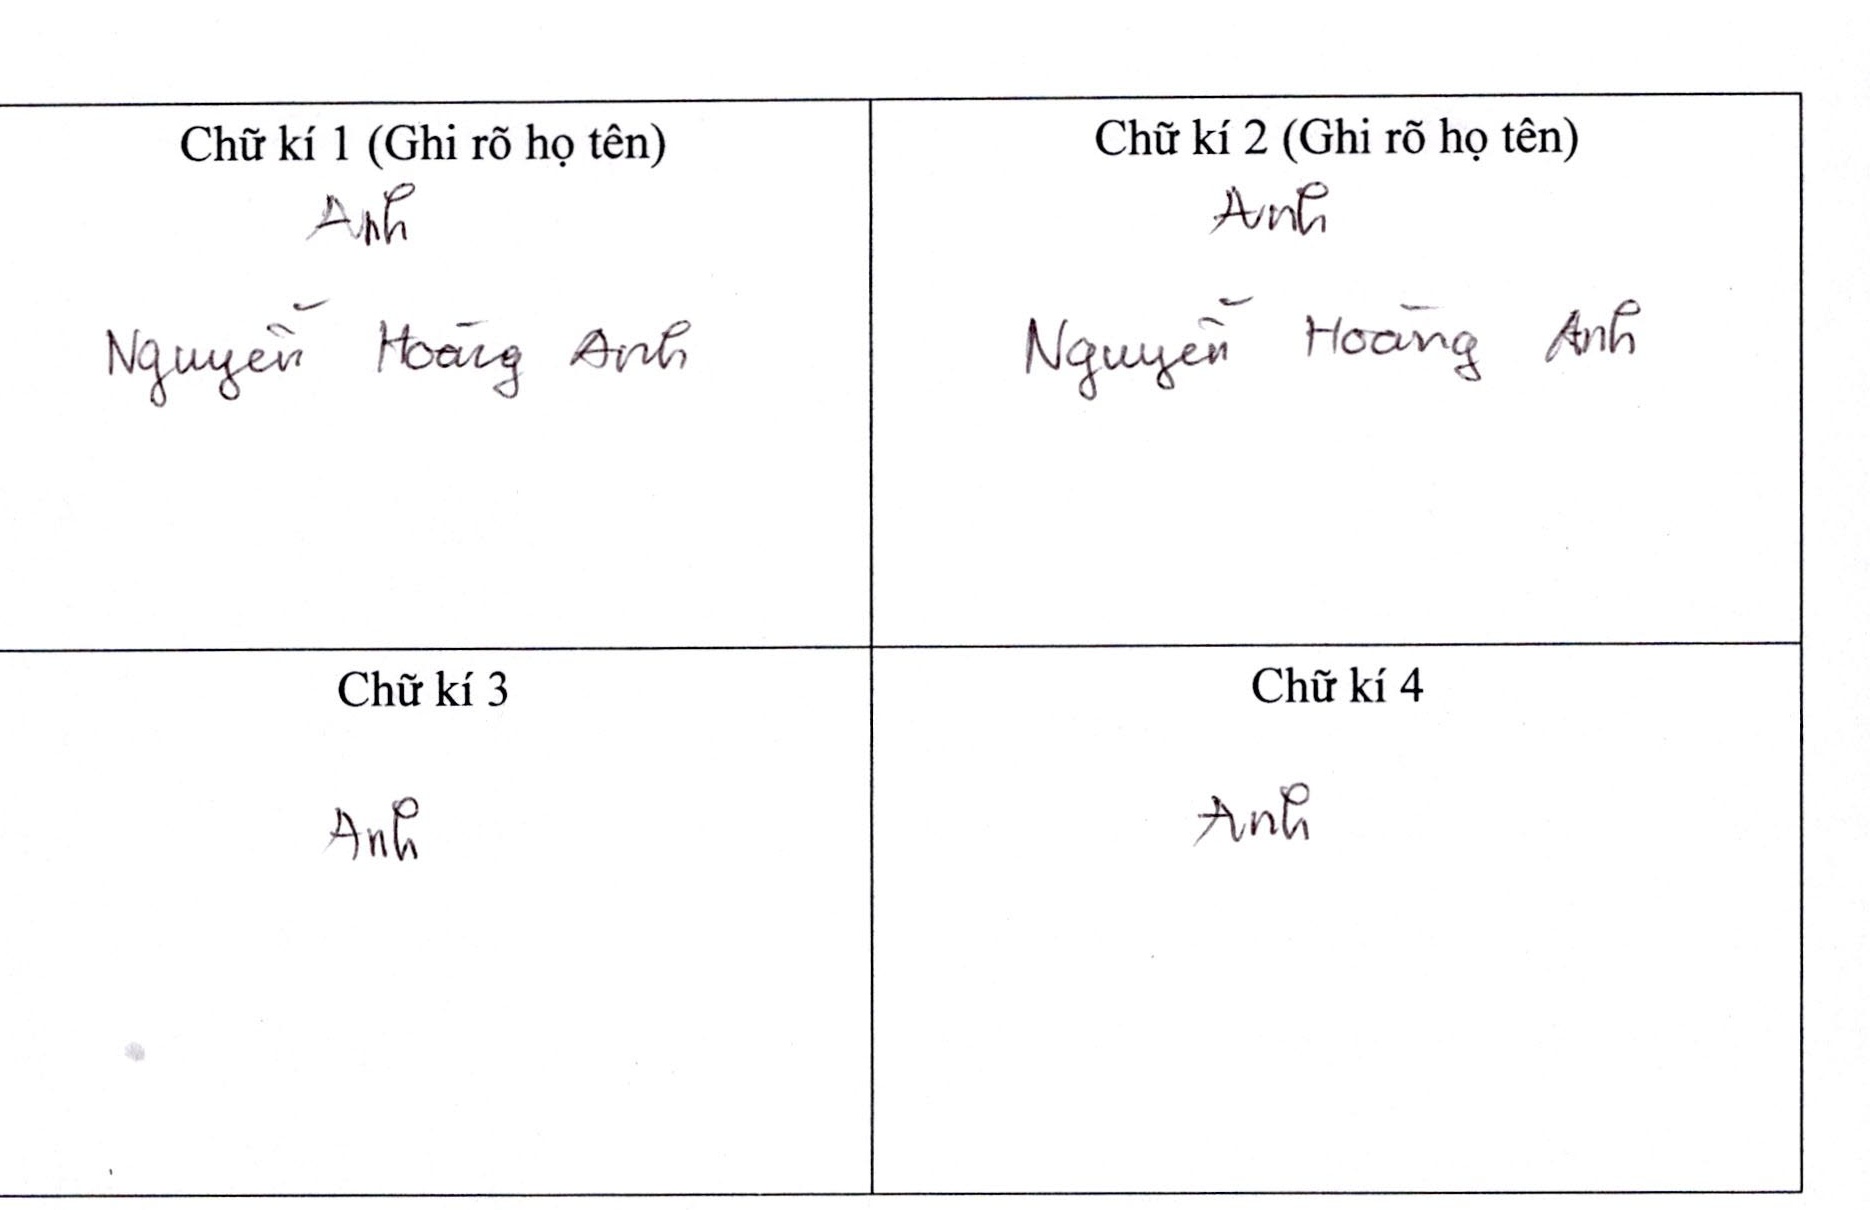 Chữ kí 1 (Ghi rõ họ tên)
Anh
Nguyễn Hoàng Anh
Chữ kí 2 (Ghi rõ họ tên)
Anh
Nguyễn Hoàng Anh
Chữ kí 3
Anh
Chữ kí 4
Anh